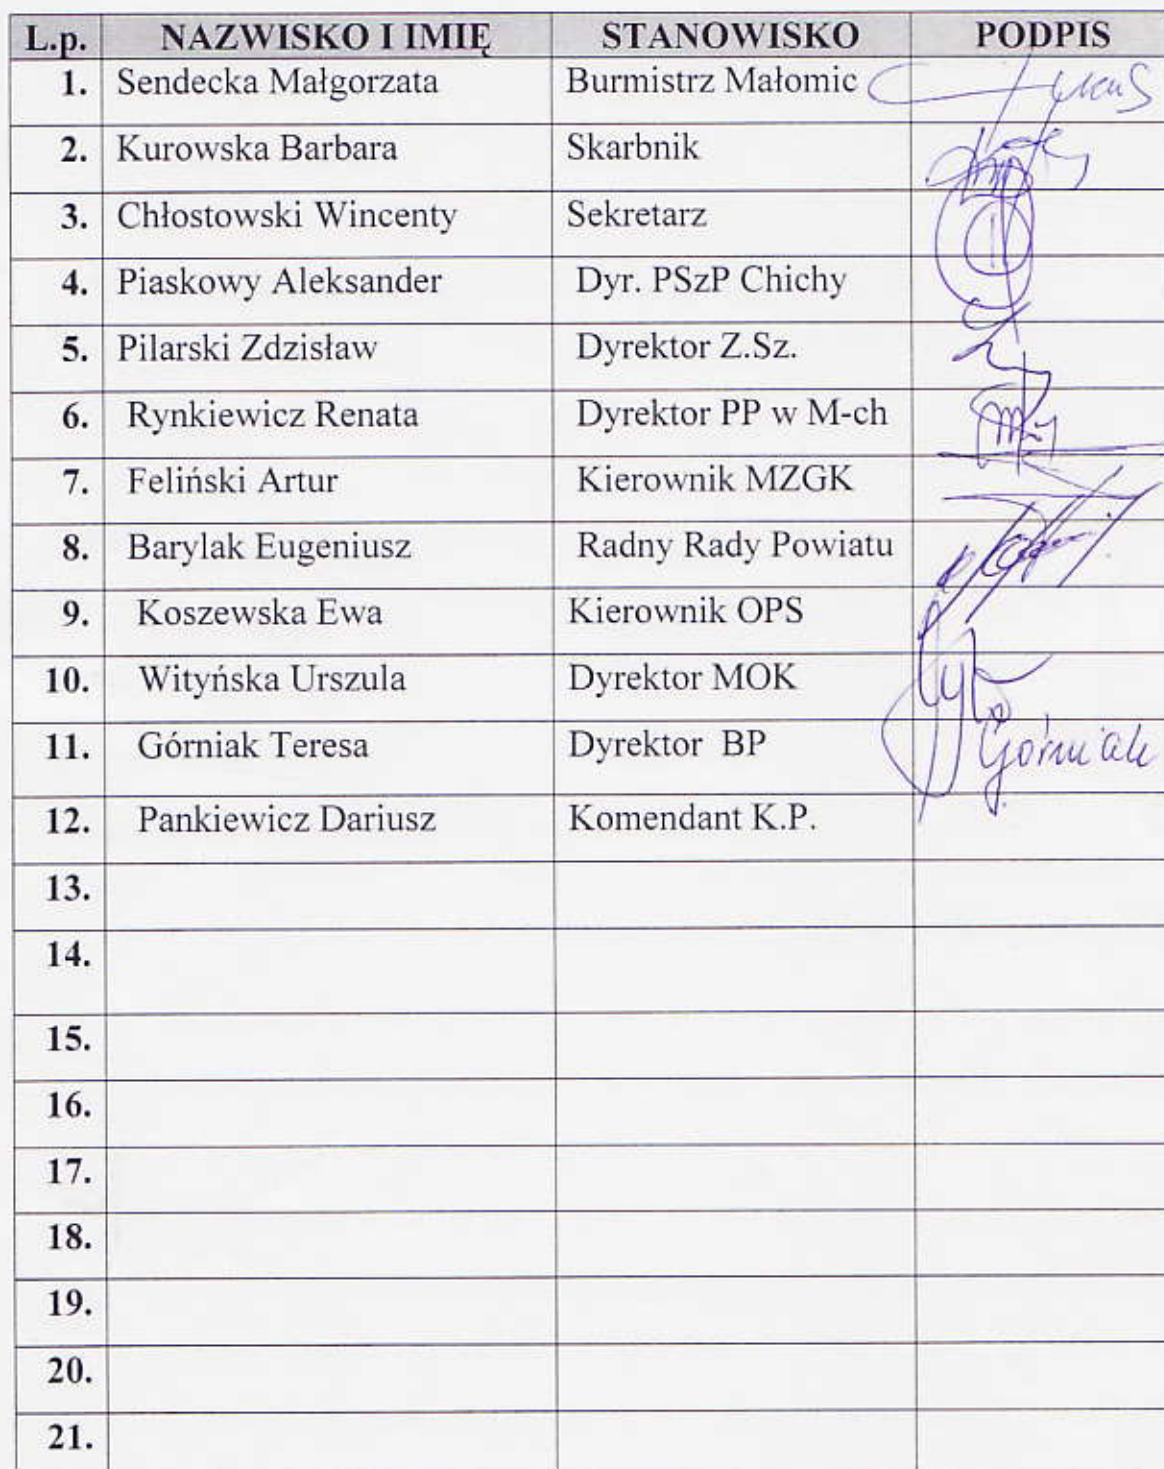 L.p. NAZWISKO I IMIĘ STANOWISKO PODPIS
1. Sendecka Małgorzata Burmistrz Małomic
2. Kurowska Barbara Skarbnik
3. Chłostowski Wincenty Sekretarz
4. Piaskowy Aleksander Dyr. PSzP Chichy
5. Pilarski Zdzisław Dyrektor Z.Sz.
6. Rynkiewicz Renata Dyrektor PP w M-ch
7. Feliński Artur Kierownik MZGK
8. Barylak Eugeniusz Radny Rady Powiatu
9. Koszewska Ewa Kierownik OPS
10. Wityńska Urszula Dyrektor MOK
11. Górniak Teresa Dyrektor BP Górniak
12. Pankiewicz Dariusz Komendant K.P.
13.
14.
15.
16.
17.
18.
19.
20.
21.